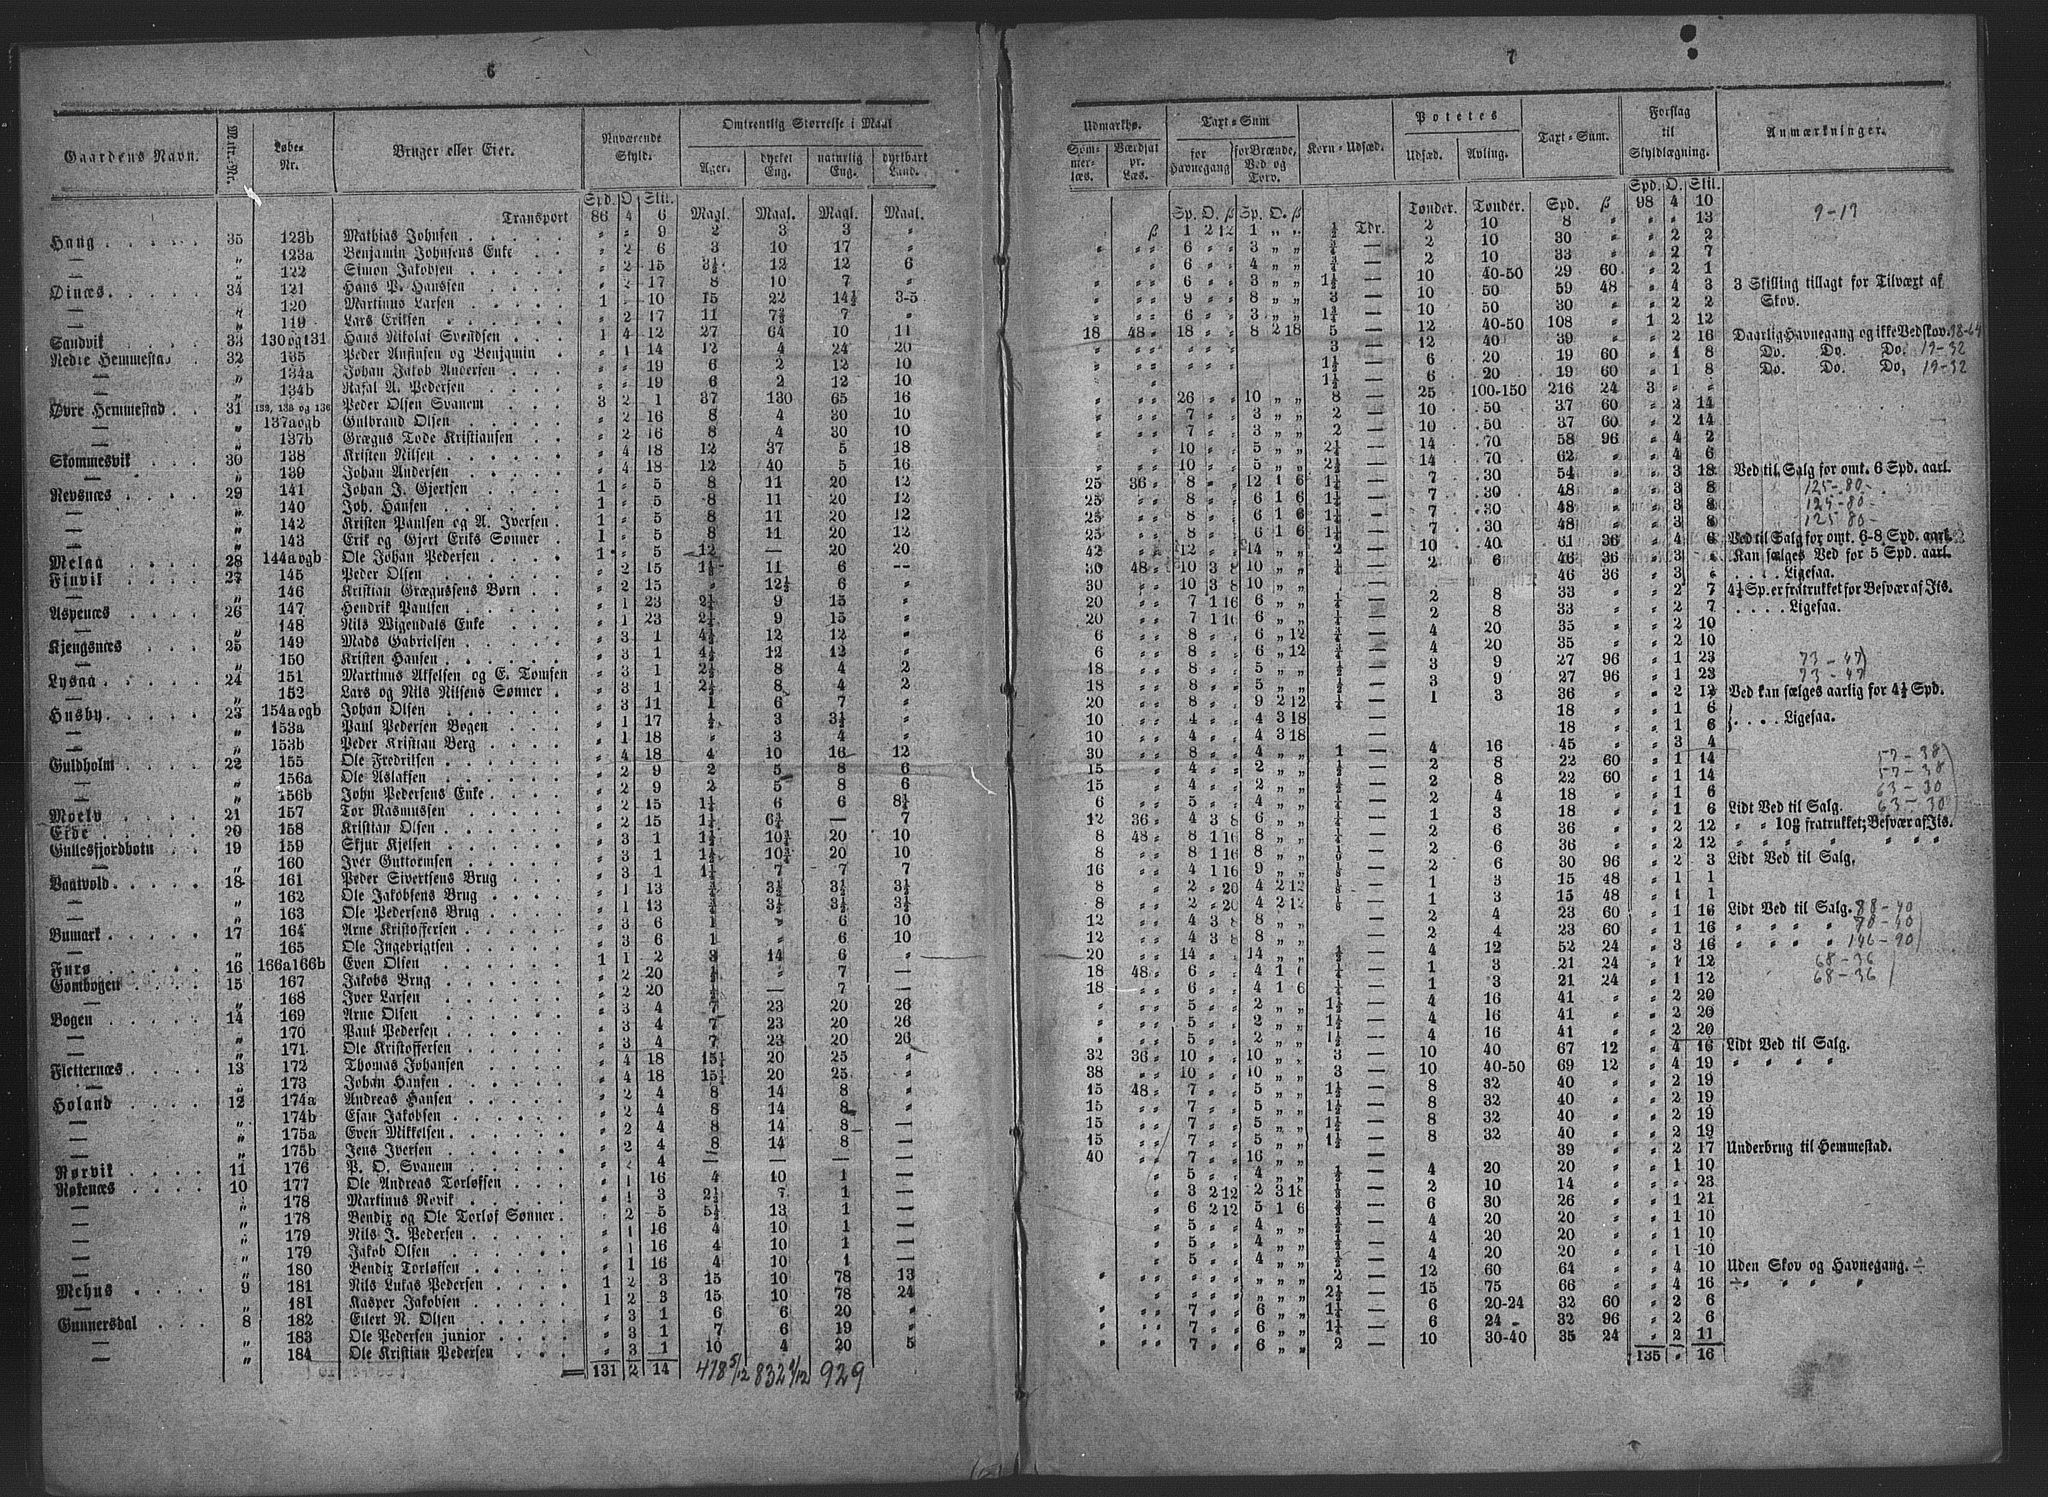 6
Gaardens Navn. Matr.-Nr. Løbe-Nr. Bruger eller Eier. Nuværende Skyld. Omtrentlig Størrelse i Maal
Ager. dyrket Eng. naturlig Eng. dyrkbart Land.
Spd. O. Skl.
Transport 86 4 6 Magl. Maal. Magl. Maal.
Haug 35 123b Mathias Johnsen „ „ 9 2 3 3 „
— „ 123a Benjamin Johnsens Enke „ 2 6 3 10 17 „
— „ 122 Simon Jakobsen „ 2 15 3½ 12 12 6
Dinæs 34 121 Hans P. Hanssen „ 2 17 8 10 7 „
— „ 120 Martinus Larsen 1 „ 10 15 22 14½ 3-5
— „ 119 Lars Eriksen „ 2 17 11 7½ 7 „
Sandvik 33 130og131 Hans Nikolai Svendsen 1 4 12 27 64 10 11
Nedre Hemmestad 32 135 Peder Anfinsen og Benjamin „ 1 14 12 4 24 20
— „ 134a Johan Jakob Andersen „ „ 19 6 2 12 10
— „ 134b Rafal A. Pedersen „ „ 19 6 2 12 10
Øvre Hemmestad 31 132, 133 og 136 Peder Olsen Svanem 3 2 1 37 130 65 16
— „ 137aogb Gulbrand Olsen „ 2 16 8 4 30 10
— „ 137b Grægus Tode Kristiansen „ 2 16 8 4 30 10
Skommesvik 30 138 Kristen Nilsen „ 4 18 12 37 5 18
— „ 139 Johan Andersen „ 4 18 12 40 5 16
Revsnæs 29 141 Johan J. Gjertsen 1 „ 5 8 11 20 12
— „ 140 Joh. Hansen 1 „ 5 8 11 20 12
— „ 142 Kristen Paulsen og A. Iversen 1 „ 5 8 11 20 12
— „ 143 Erik og Gjert Eriks Sønner 1 „ 5 8 11 20 12
Melaa 28 144aogb Ole Johan Pedersen 1 „ 5 12 — 20 20
Finvik 27 145 Peder Olsen „ 2 15 1½ 11 6 --
— „ 146 Kristian Grægussens Børn „ 2 15 „ 12½ 6 „
Aspenæs 26 147 Hendrik Paulsen „ 1 23 2½ 9 15 „
— „ 148 Nils Wigendals Enke „ 1 23 2½ 9 15 „
Kjengsnæs 25 149 Mads Gabrielsen „ 3 1 4½ 12 12 „
— „ 150 Kristen Hansen „ 3 1 4½ 12 12 „
Lysaa 24 151 Martinus Akselsen og E. Tomsen „ 3 1 2½ 8 4 2
— „ 152 Lars og Nils Nilsens Sønner „ 3 1 2½ 8 4 2
Husby 23 154aogb Johan Olsen „ 3 11 1 6 7 „
— „ 153a Paul Pedersen Bogen „ 1 17 ½ 3 3½ „
— „ 153b Peder Kristian Berg „ 1 18 „ 3 4 „
Guldholm 22 155 Ole Fredriksen „ 4 18 4 10 16 12
— „ 156a Ole Aslaksen „ 2 9 2 5 8 6
— „ 156b John Pedersens Enke „ 2 9 2 5 8 6
Moelv 21 157 Tor Rasmussen „ 2 15 1½ 6 6 8½
Elde 20 158 Kristian Olsen „ 2 15 1½ 6½ — 7
Gullesfjordbotn 19 159 Skjur Kjelsen „ 3 1 1½ 10¾ 20 10
— „ 160 Iver Guttormsen „ 3 1 1½ 10¾ 20 10
Vaatvold 18 161 Peder Sivertsens Brug „ 3 1 1½ 7 7 7
— „ 162 Ole Jakobsens Brug „ 1 13 ¾ 3½ 3½ 3½
— „ 163 Ole Pedersens Brug „ 1 13 ¾ 3½ 3½ 3½
Bumark 17 164 Arne Kristoffersen „ 3 6 1 „ 6 10
— „ 165 Ole Ingebrigtsen „ 3 6 1 „ 6 10
Furø 16 166a166b Even Olsen 1 1 2 3 14 6 „
Gombogen 15 167 Jakobs Brug „ 2 20 ½ — 7 —
— „ 168 Iver Larsen „ 2 20 ½ — 7 —
Bogen 14 169 Arne Olsen „ 3 4 7 23 20 26
— „ 170 Paul Pedersen „ 3 4 7 23 20 26
— „ 171 Ole Kristoffersen „ 3 4 7 23 20 26
Fletternæs 13 172 Thomas Johansen „ 4 18 15½ 20 25 „
— „ 173 Johan Hansen „ 4 18 15½ 20 25 „
Holand 12 174a Andreas Hansen „ 2 4 8 14 8 „
— „ 174b Esau Jakobsen „ 2 4 8 14 8 „
— „ 175a Even Mikkelsen „ 2 4 8 14 8 —
— „ 175b Jens Iversen „ 2 4 8 14 8 „
Rørvik 11 176 P. O. Svanem „ 2 4 — — — —
Røkenæs 10 177 Ole Andreas Torløfsen „ 1 16 4 10 1 —
— „ 178 Martinus Rovik „ 1 3 2½ 7 1 —
— „ 178 Bendix og Ole Torløf Sønner „ 2 5 5½ 13 1 —
— „ 179 Nils J. Pedersen „ 1 16 4 10 1 —
— „ 179 Jakob Olsen „ 1 16 4 10 1 —
— „ 180 Bendix Torløfsen „ 1 16 4 10 1 —
Mehus 9 181 Nils Lukas Pedersen 1 2 3 15 10 78 13
— „ 181 Kasper Jakobsen 1 2 3 15 10 78 24
Gunnersdal 8 182 Eilert N. Olsen „ 3 1 6 6 20 „
— „ 183 Ole Pedersen junior „ 3 1 7 6 19 „
— „ 184 Ole Kristian Pedersen „ 3 1 10 4 20 5
131 2 14 418 5/12 832 1/12 929
7
Udmarkhø. Taxt-Sum Korn-Udsæd. Potetes Taxt-Sum. Forslag til Skyldlægning. Anmærkninger.
Sommerlæs. Værdsat pr. Læs. for Havnegang for Brænde, Ved og Torv. Udsæd. Avling.
Tønder. Tønder. Spd. ß Spd. O. Skl.
98 4 10
ß Sp. O. ß Sp. O. ß
1 2 12 1 „ „ ½ Tdr. 2 10 8 „ „ „ 13 9-17
„ „ 6 „ „ 3 „ „ ¾ — 2 10 30 „ „ 2 2
„ „ 6 „ „ 4 „ „ ¾ — 2 10 33 „ „ 2 7
„ „ 6 „ „ 3 „ „ 1½ — 10 40-50 29 60 „ 2 1
„ „ 9 „ „ 8 „ „ 3 — 10 50 59 48 „ 4 3 3 Skilling tillagt for Tilvæxt af Skov.
„ „ 6 „ „ 3 „ „ 1¾ — 10 50 30 „ „ 2 2
18 48 18 „ „ 8 2 18 5 — 12 40-50 108 „ 1 2 12
3 — 12 40 39 „ „ 2 16 Daarlig Havnegang og ikke Vedskov. 98-64
1½ — 6 20 19 60 „ 1 8 Do. Do. Do. 19-32
1½ — 6 20 19 60 „ 1 8 Do. Do. Do. 19-32
„ „ 26 „ „ 10 „ „ 8 — 25 100-150 216 24 3 „ „
„ „ 7 „ „ 3 „ „ 2 — 10 50 37 60 „ 2 14
„ „ 7 „ „ 3 „ „ 2 — 10 50 37 60 „ 2 14
„ „ 10 „ „ 5 „ „ 2½ — 14 70 58 96 „ 4 2
„ „ 10 „ „ 5 „ „ 2½ — 14 70 62 „ „ 4 6
25 36 8 „ „ 12 1 6 1½ — 7 30 54 „ „ 3 18 Ved til Salg for omt. 6 Spd. aarl.
25 „ 8 „ „ 6 1 6 1½ — 7 30 48 „ „ 3 8 125-80-
25 „ 8 „ „ 6 1 6 1½ — 7 30 48 „ „ 3 8 125-80-
25 „ 8 „ „ 6 1 6 1½ — 7 30 48 „ „ 3 8 125-80-
42 „ 12 „ „ 14 „ „ 2 — 10 40 61 36 „ 4 6 Ved til Salg for omt. 6-8 Spd. aarl.
30 48 10 3 8 10 „ „ ¼ — 2 6 46 36 „ 3 „ Kan sælges Ved for 5 Spd. aarl.
30 „ 10 3 8 10 „ „ 46 36 „ 3 „ Ligesaa.
20 „ 7 1 16 6 „ „ ½ — 2 8 33 „ „ 2 7 4½ Sp. er fratrukket for Besvær af Jis.
20 „ 7 1 16 6 „ „ ½ — 2 8 33 „ „ 2 7 Ligesaa.
6 „ 8 „ „ 6 „ 12 ¾ — 4 20 35 „ „ 2 10
6 „ 8 „ „ 6 „ 12 ¾ — 4 20 35 „ „ 2 10
18 „ 8 „ „ 5 „ „ ½ — 3 9 27 96 „ 1 23 73-47
18 „ 8 „ „ 5 „ „ ½ — 3 9 27 96 „ 1 23 73-47
20 „ 8 „ „ 9 2 12 ¼ — 1 3 36 „ „ 2 12 Ved kan sælges aarlig for 4½ Spd.
10 „ 4 „ „ 4 3 18 18 „ „ 1 6
10 „ 4 „ „ 4 3 18 18 „ „ 1 6 Ligesaa.
30 „ 8 „ „ 4 „ „ 1 — 4 16 45 „ „ 3 4
15 „ 4 „ „ 2 „ „ ½ — 2 8 22 60 „ 1 14 57-38
15 „ 4 „ „ 2 „ „ ½ — 2 8 22 60 „ 1 14 57-38
6 „ 5 „ „ 4 „ „ 2 4 18 „ „ 1 6 63-30
12 36 4 3 8 6 „ „ 1 3 18 „ „ 1 6 Lidt Ved til Salg. 63-30
8 48 8 1 16 8 „ „ 2 6 36 „ „ 2 12 „ „ fratrukket; Besvær af Jis.
8 „ 8 1 16 8 „ „ 2 6 36 „ „ 2 12 „ „ „ „ „
16 „ 4 1 16 9 „ „ 2 6 30 96 „ 2 3 Lidt Ved til Salg.
8 „ 2 „ 20 4 2 12 ⅛ — 1 3 15 48 „ 1 1
8 „ 2 „ 20 4 2 12 ⅛ — 1 3 15 48 „ 1 1
12 „ 4 3 8 8 „ „ 2 4 23 60 „ 1 16 Lidt Ved til Salg. 88-40
12 „ 4 3 8 8 „ „ 2 4 23 60 „ 1 16 „ „ „ „ 78-40
20 „ 14 „ „ 14 „ „ ½ — 4 12 52 24 „ 3 16 „ „ „ „ 146-90
18 48 6 „ „ 4 1 6 1 3 21 24 „ 1 12 68-36
18 „ 6 „ „ 4 1 6 1 3 21 24 „ 1 12 68-36
„ „ 5 „ „ 2 „ „ 1½ — 4 16 41 „ „ 2 20
„ „ 5 „ „ 2 „ „ 1½ — 4 16 41 „ „ 2 20
„ „ 5 „ „ 2 „ „ 1½ — 4 16 41 „ „ 2 20
32 36 10 „ „ 10 „ „ 3 — 10 40 67 12 „ 4 16 Lidt Ved til Salg.
38 „ 10 „ „ 10 „ „ 3 — 10 40-50 69 12 „ 4 19 „ „ „ „
15 48 7 „ „ 5 „ „ 1½ — 8 32 40 „ „ 2 19
15 „ 7 „ „ 5 „ „ 1½ — 8 32 40 „ „ 2 19
15 „ 7 „ „ 5 „ „ 1½ — 8 32 40 „ „ 2 19
15 „ 7 „ „ 5 „ „ 1½ — 8 32 40 „ „ 2 19
40 „ 7 „ „ 16 „ „ 39 „ „ 2 17 Underbrug til Hemmestad.
„ 5 „ „ 4 „ „ ½ — 4 20 20 „ „ 1 10
„ 3 2 12 2 3 18 ½ — 2 10 14 „ „ „ 23
„ 6 2 12 5 1 6 ¾ — 6 30 26 „ „ 1 21
„ 5 „ „ 4 „ „ ½ — 4 20 20 „ „ 1 10
„ 5 „ „ 4 „ „ ½ — 4 20 20 „ „ 1 10
„ 5 „ „ 4 „ „ ½ — 4 20 20 „ „ 1 10
„ „ „ „ „ 2 — 12 60 64 „ „ 4 10 Uden Skov og Havnegang. ÷
„ „ „ 2½ — 15 75 66 „ „ 4 16 ÷ „ „ „
„ „ 7 „ „ 6 „ „ 1½ — 6 20-24 32 60 „ 2 6
„ „ 7 „ „ 6 „ „ 1½ — 6 24 32 96 „ 2 6
„ „ 7 „ „ 6 „ „ 2 — 10 30-40 35 24 „ 2 11
135 „ 16